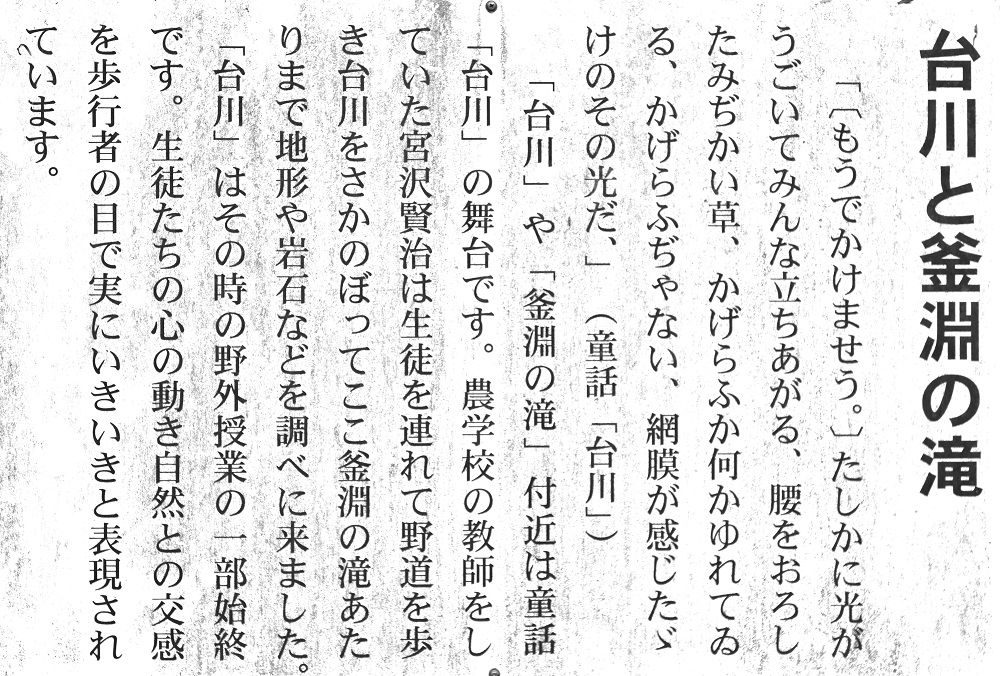 台川と釜淵の滝
「〔もうでかけませう。〕たしかに光が
うごいてみんな立ちあがる、腰をおろし
たみぢかい草、かげらふか何かゆれてゐ
る、かげらふぢゃない、網膜が感じたゞ
けのその光だ、」（童話「台川」）
「台川」や「釜淵の滝」付近は童話
「台川」の舞台です。農学校の教師をし
ていた宮沢賢治は生徒を連れて野道を歩
き台川をさかのぼってここ釜淵の滝あた
りまで地形や岩石などを調べに来ました。
「台川」はその時の野外授業の一部始終
です。生徒たちの心の動き自然との交感
を歩行者の目で実にいきいきと表現され
ています。